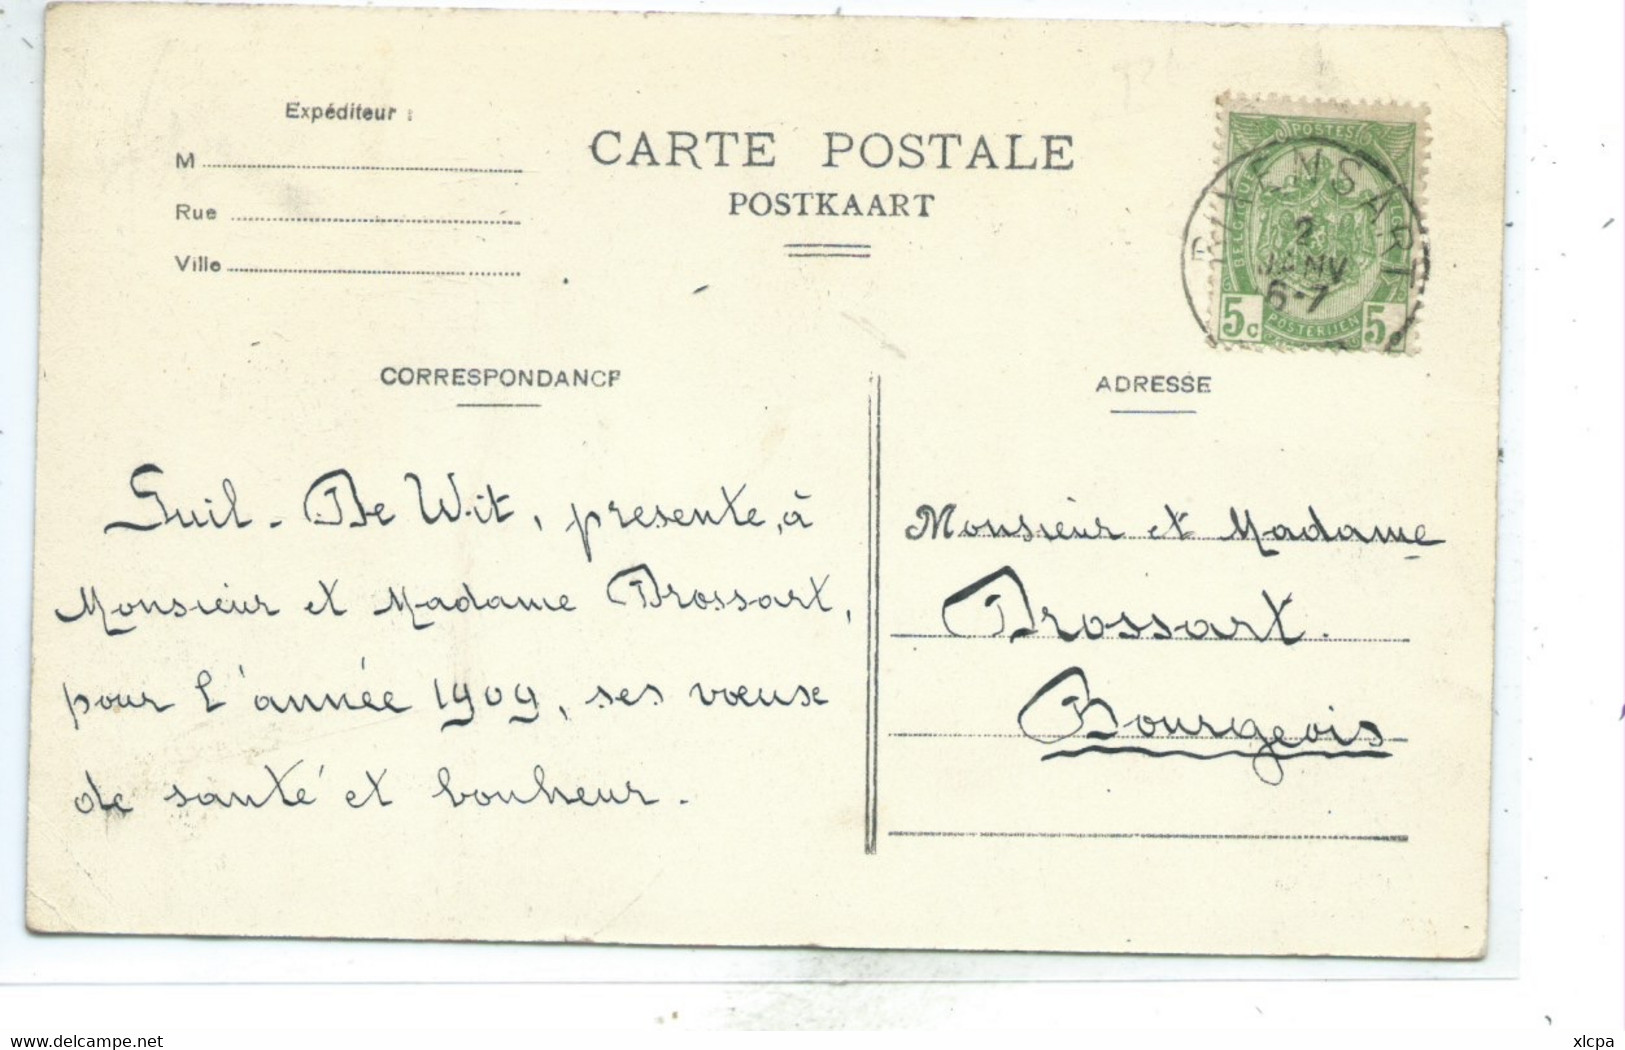 Expéditeur :
M
Rue
Ville
CARTE POSTALE
POSTKAART
POSTES
BELGIQUE
BELGIË
5c
POSTERIJEN
5c
RIXENSART
2
JANV
6-7
CORRESPONDANCE
ADRESSE
Guil. De Wit, presente, à
Monsieur et Madame Brossart,
pour l'année 1909, ses voeux
de santé et bonheur.
Monsieur et Madame
Brossart.
Bourgeois
delcampe.net
xlcpa